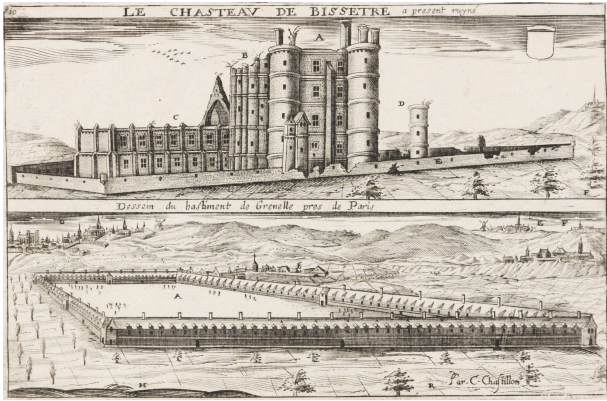 LE CHASTEAV DE BISSETRE a present ruyné
A
B
C
D
E
F
Dessein du bastiment de Grenelle pres de Paris
A
H
R
Par C. Chastillon